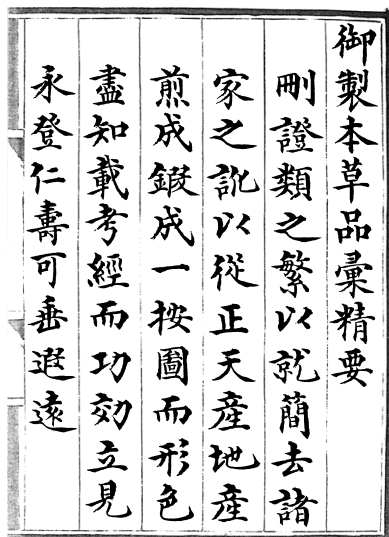 御製本草品彙精要
刪證類之繁以就簡去諸
家之訛以從正天產地產
煎成鍛成一按圖而形色
盡知載考經而功効立見
永登仁壽可垂遐遠